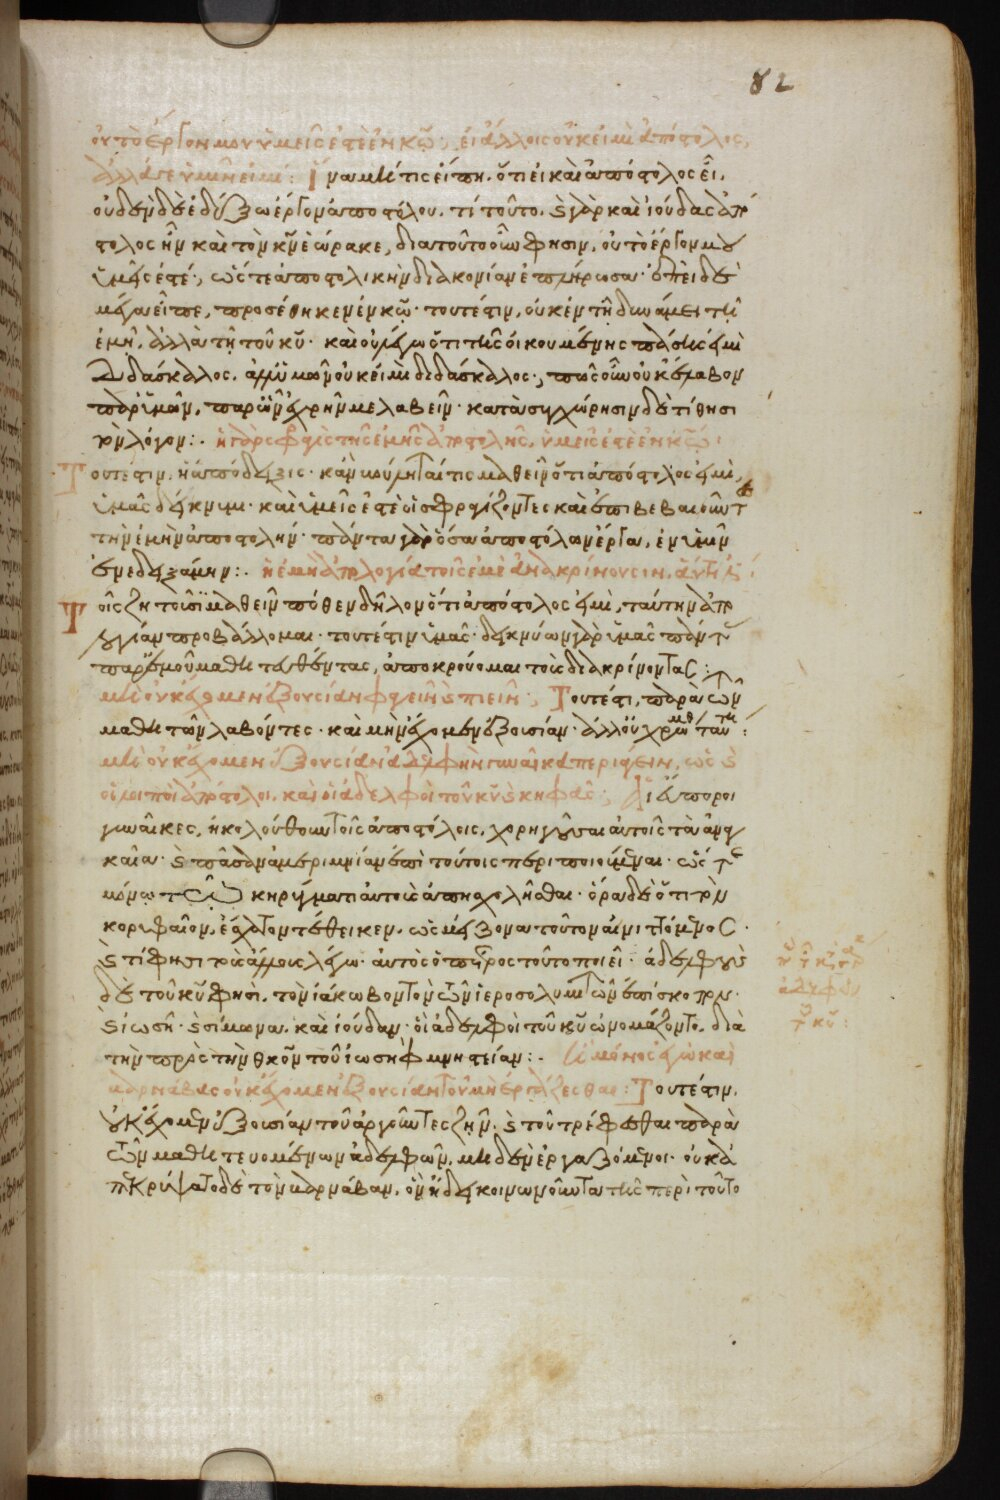 82
οὐ τὸ ἔργον μου ὑμεῖς ἐστὲ ἐν κῶ; εἰ ἄλλοις οὐκ εἰμὶ ἀπόστολος,
ἀλλά γε ὑμῖν εἰμι: Ἵνα μή τις εἴπη, ὅτι εἰ καὶ ἀπόστολος εἶ,
οὐδὲν δὲ ἔδειξω ἔργον ἀποστόλου. τί τοῦτο. καὶ γὰρ καὶ ἰούδας ἀπό
στολος ἦν καὶ τὸν κν ἑώρακε, διατοῦτο οὖν φησιν, οὐ τὸ ἔργον μου
ὑμεῖς ἐστέ; ὥστε ἀποστολικὴν διακονίαν ἐπλήρωσα. ἐπεὶ δὲ
μέγα εἶπε, προσέθηκεν ἐν κῶ. τουτέστιν, οὐκ ἐν τῇ δυνάμει τῇ
ἐμῇ, ἀλλὰ τῇ τοῦ κυ. καὶ οὐ λέγω ὅτι τῆς οἰκουμένης πάσης εἰμὶ
διδάσκαλος. ἀλλ' ὑμῶν οὐκ εἰμὶ διδάσκαλος; πῶς οὖν οὐκ ἔλαβον
παρ' ὑμῶν, παρ' ὧν ἐχρῆν με λαβεῖν. κατὰ συγχώρησιν δὲ τίθησι
τὸν λόγον: ἡ γὰρ σφραγὶς τῆς ἐμῆς ἀποστολῆς, ὑμεῖς ἐστὲ ἐν κῶ:
Τουτέστιν, ἡ ἀπόδειξις. κἂν βούληταί τις μαθεῖν ὅτι ἀπόστολος εἰμὶ,
ὑμᾶς δείκνυμι. καὶ ὑμεῖς ἐστὲ οἱ σφραγίζοντες καὶ ἐπιβεβαιοῦντες
τὴν ἐμὴν ἀποστολήν. πάντα γὰρ ὅσα ἀποστόλων ἔργα, ἐν ὑμῖν
ἐνεδειξάμην: ἡ ἐμὴ ἀπολογία τοῖς ἐμὲ ἀνακρίνουσιν, αὕτη ἐστί
Τοῖς ζητοῦσι μαθεῖν πόθεν δῆλον ὅτι ἀπόστολος εἰμὶ, ταύτην ἀπο
λογίαν προβάλλομαι. τουτέστιν ὑμᾶς. δεικνύων γὰρ ὑμᾶς πάντα
παρ' ἐμοῦ μαθητευθέντας, ἀποκρούομαι τοὺς διακρίνοντας:
μὴ οὐκ ἔχομεν ἐξουσίαν φαγεῖν καὶ πιεῖν; Τουτέστι, παρὰ τῶν
μαθητῶν λαβόντες. καὶ μὴν ἔχομεν ἐξουσίαν. ἀλλ' οὐ χρώμεθα ταύτη:
μὴ οὐκ ἔχομεν ἐξουσίαν ἀδελφὴν γυναῖκα περιάγειν, ὡς καὶ
οἱ λοιποὶ ἀπόστολοι, καὶ οἱ ἀδελφοὶ τοῦ κυ καὶ κηφᾶς; Αἱ εὔποροι
γυναῖκες, ἠκολούθουν τοῖς ἀποστόλοις, χορηγοῦσαι αὐτοῖς τὰ ἀναγ
καῖα. καὶ πᾶσαν ἀμεριμνίαν ἐπὶ τούτοις περιποιούμεναι. ὥστε
μόνω τῶ κηρύγματι αὐτοὺς ἀπησχολῆσθαι. ὅρα δὲ ὅτι τὸν
κορυφαῖον, ἔσχατον τέθεικεν. ὡς μείζονα τοῦτον αἰνιττόμενος.
καὶ τί φησι τοὺς ἄλλους λέγω. αὐτὸς ὁ πέτρος τοῦτο ποιεῖ. ἀδελφοὺς
δὲ τοῦ κυ φησὶ, τὸν ἰάκωβον τὸν τῶν ἱεροσολυμιτῶν ἐπίσκοπον.
καὶ ἰωσῆ. καὶ σίμωνα, καὶ ἰούδαν. οἳ ἀδελφοὶ τοῦ κυ ὠνομάζοντο, διὰ
τὴν πρὸς τὴν θκον τοῦ ἰωσὴφ μνηστείαν: ἢ μόνος ἐγὼ καὶ
βαρνάβας οὐκ ἔχομεν ἐξουσίαν τοῦ μὴ ἐργάζεσθαι: Τουτέστιν,
οὐκ ἔχομεν ἐξουσίαν τοῦ ἀργοῦντες ζῆν. καὶ τοῦ τρέφεσθαι παρὰ
τῶν μαθητευομένων ἀδελφῶν, μηδὲν ἐργαζόμενοι. οὐκ ἀ
πεκρύψατο δὲ τὸν βαρνάβαν, ὃν ᾔδει κοινωνοῦντα τῆς περὶ τοῦτο